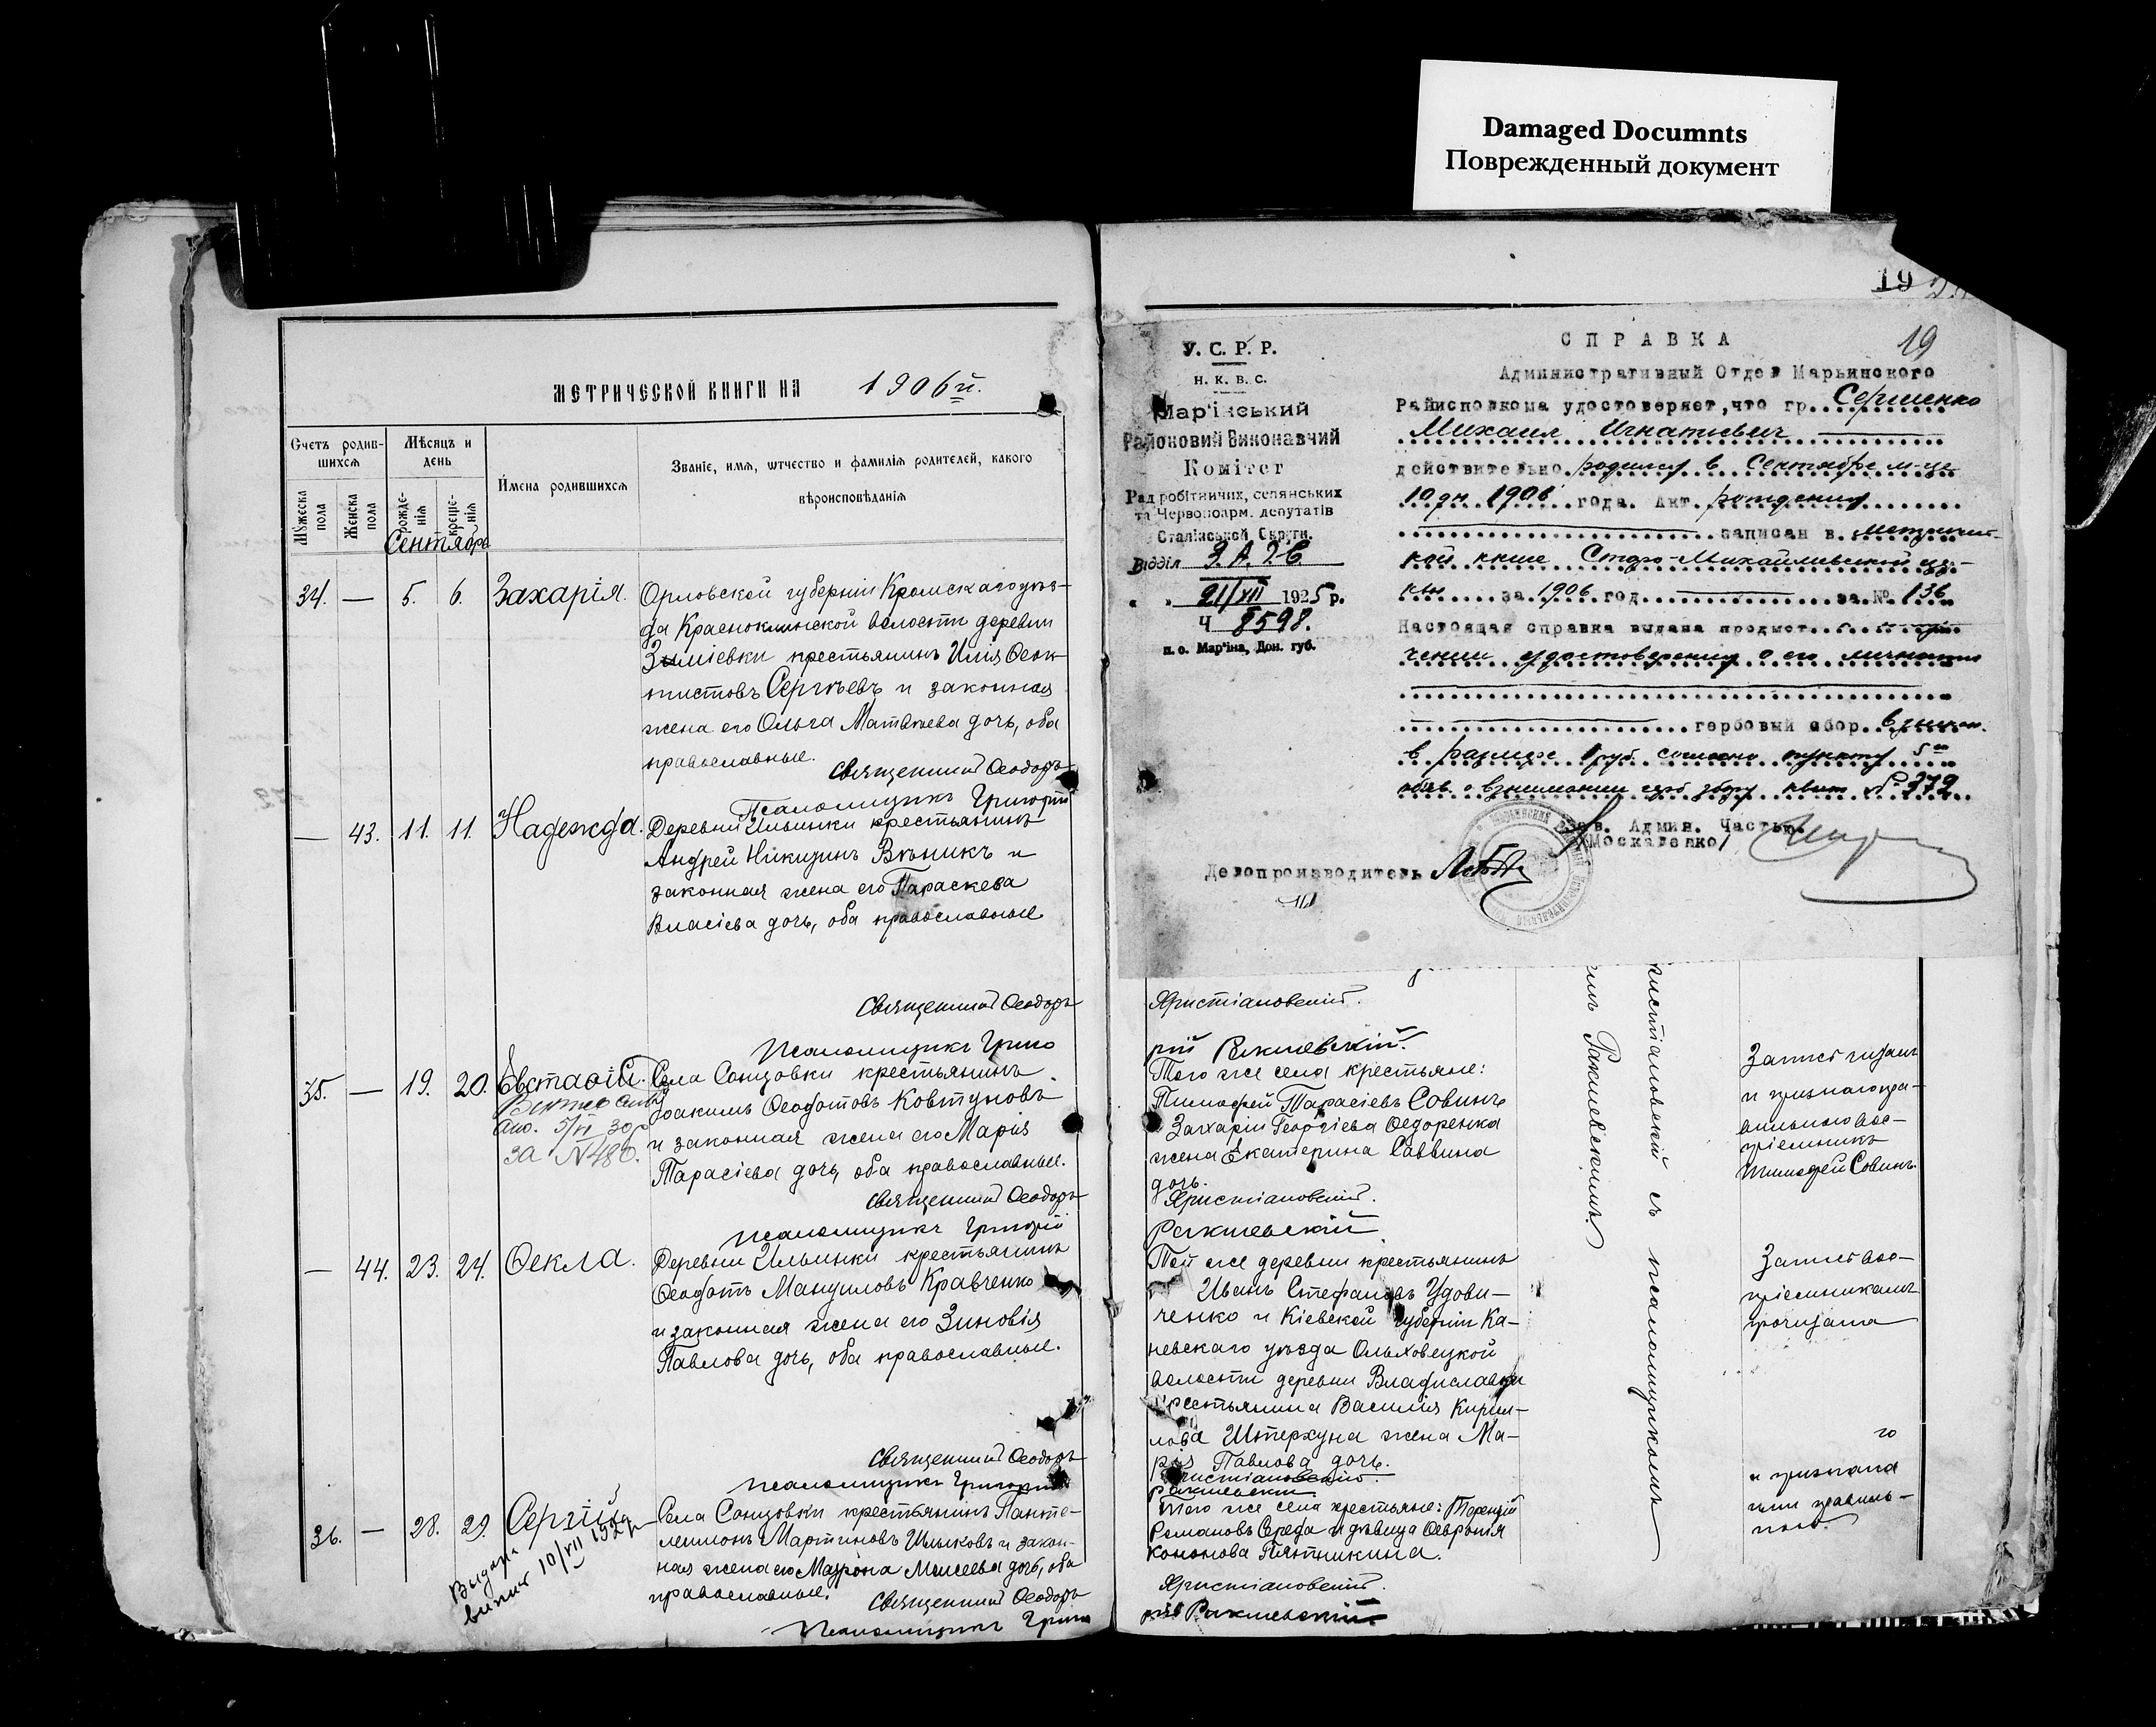 Damaged Documnts
Поврежденный документ
МЕТРИЧЕСКОЙ КНИГИ НА 1906й.
Счетъ родив-
шихся
Мѣсяцъ и
день
Имена родившихся
Званіе, имя, ѡтчество и фамилія родителей, какого
вѣроисповѣданія
Мꙋжеска
пола
Женска
пола
рожде-
нія
креще-
нія
Сентябрь
34. — 5. 6. Захарія.
Орловской губерніи Кромскаго уѣз-
да Красноклинской волости деревни
крестьянинъ Илія Ѳеок-
тистовъ Сергѣевъ и законная
жена его Ольга Матвѣева дочь, оба
православные.
Священникъ Ѳеодоръ
Псаломщикъ Григорій
— 43. 11. 11. Надежда.
Деревни Ильинки крестьянинъ
Андрей Никитинъ Вѣникъ и
законная жена его Параскева
Власіева дочь, оба православные.
Священникъ Ѳеодоръ
Псаломщикъ Григо
35. — 19. 20. Евстаѳій.
5/VI 30р
за №480.
Села Сонцовки крестьянинъ
Іоакимъ Ѳеодотовъ Ковтуновъ
и законная жена его Марія
Тарасіева дочь, оба православные.
Священникъ Ѳеодоръ
Псаломщикъ Григорій
— 44. 23. 24. Ѳекла.
Деревни Ильинки крестьянинъ
Ѳеодотъ Мануиловъ Кравченко
и законная жена его Зиновія
Павлова дочь, оба православные.
Священникъ Ѳеодоръ
Псаломщикъ Григорій
36. — 28. 29. Сергій
Выдана
выпис 10/VII 192
Села Сонцовки крестьянинъ Панте-
леимонъ Мартиновъ и закон-
ная жена его Маѵрона Моисеева дочь, оба
православные.
Священникъ Ѳеодоръ
Псаломщикъ Григо
19
19
У. С. Р. Р.
Н. К. В. С.
Мар'їнський
Районовий Виконавчий
Комітет
Рад робітничих, селянських
та Червоноарм. депутатів
Сталінської Округи.
Відділ
21/XII 1925 р.
Ч 8598.
п. о. Мар'їна, Дон. губ.
СПРАВКА
Административный Отдел Марьинского
Райисполкома удостоверяет, что гр. Сергиенко
Михаил Игнатиевич
действительно родился в Сентябре м-це
10 дн. 1906 года. Акт рождения
записан в метричес-
кой книге Старо-Михайловской цер-
кви за 1906 год за № 136
Настоящая справка выдана предмет
чении удостоверения о его личности
гербовый сбор взыскан.
в размере 1 руб. согласно пункту 5
о взимании герб збору квит № 372
Зав. Админ. Частью
/Москаленко/
Делопроизводитель
Христіановскій.
рій Ракшевскій.
Того же села крестьяне:
Тимоѳей Тарасіевъ Совинъ
и Захарія Георгіева Ѳедоренка
жена Екатерина Саввина
дочь.
Христіановскій.
Ракшевскій.
Той же деревни крестьянинъ
Иванъ Стефановъ Удови-
ченко и Кіевской губерніи Ка-
невскаго уѣзда Ольховецкой
волости деревни Владиславки
крестьянина Василія Кирил-
лова Штерхуна жена Ма-
рія Павлова дочь.
Христіановскій.
Ракшевскій
Того же села крестьяне: Терентій
Романовъ Середа и дѣвица Ѳевронія
Кононова Пятникина.
Христіановскій.
рій Ракшевскій
ристіановскій съ псаломщикомъ
Ракшевскимъ.
Запись
и
Тимоѳей Совинъ.
Запись вос-
пріемникамъ
прочитана
го
и признана
ими правиль-
ною.